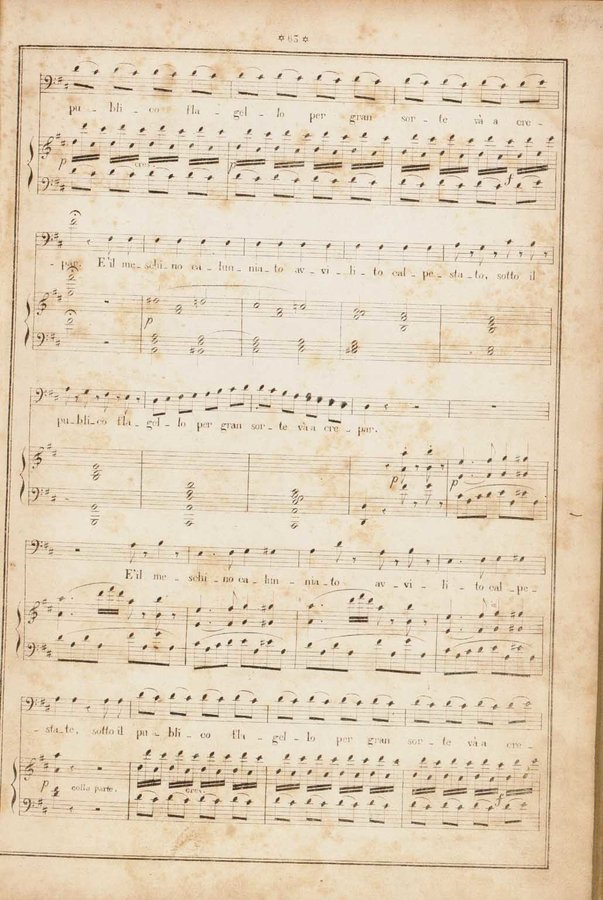 ✡ 65 ✡
pu - bli - co fla - gel - lo per gran sor - te và a cre -
p cres p f
- par. E'il me - schi - no ca - lun - nia - to av - vi - li - to cal - pe - sta - to, sotto il
p
pu - bli - co fla - gel - lo per gran sor - te và a cre - par.
p p
E'il me - schi - no ca - lun - nia - to av - vi - li - to cal - pe -
- sta - te, sotto il pu - bli - co fla - gel - lo per gran sor - te và a cre -
p colla parte. cres f